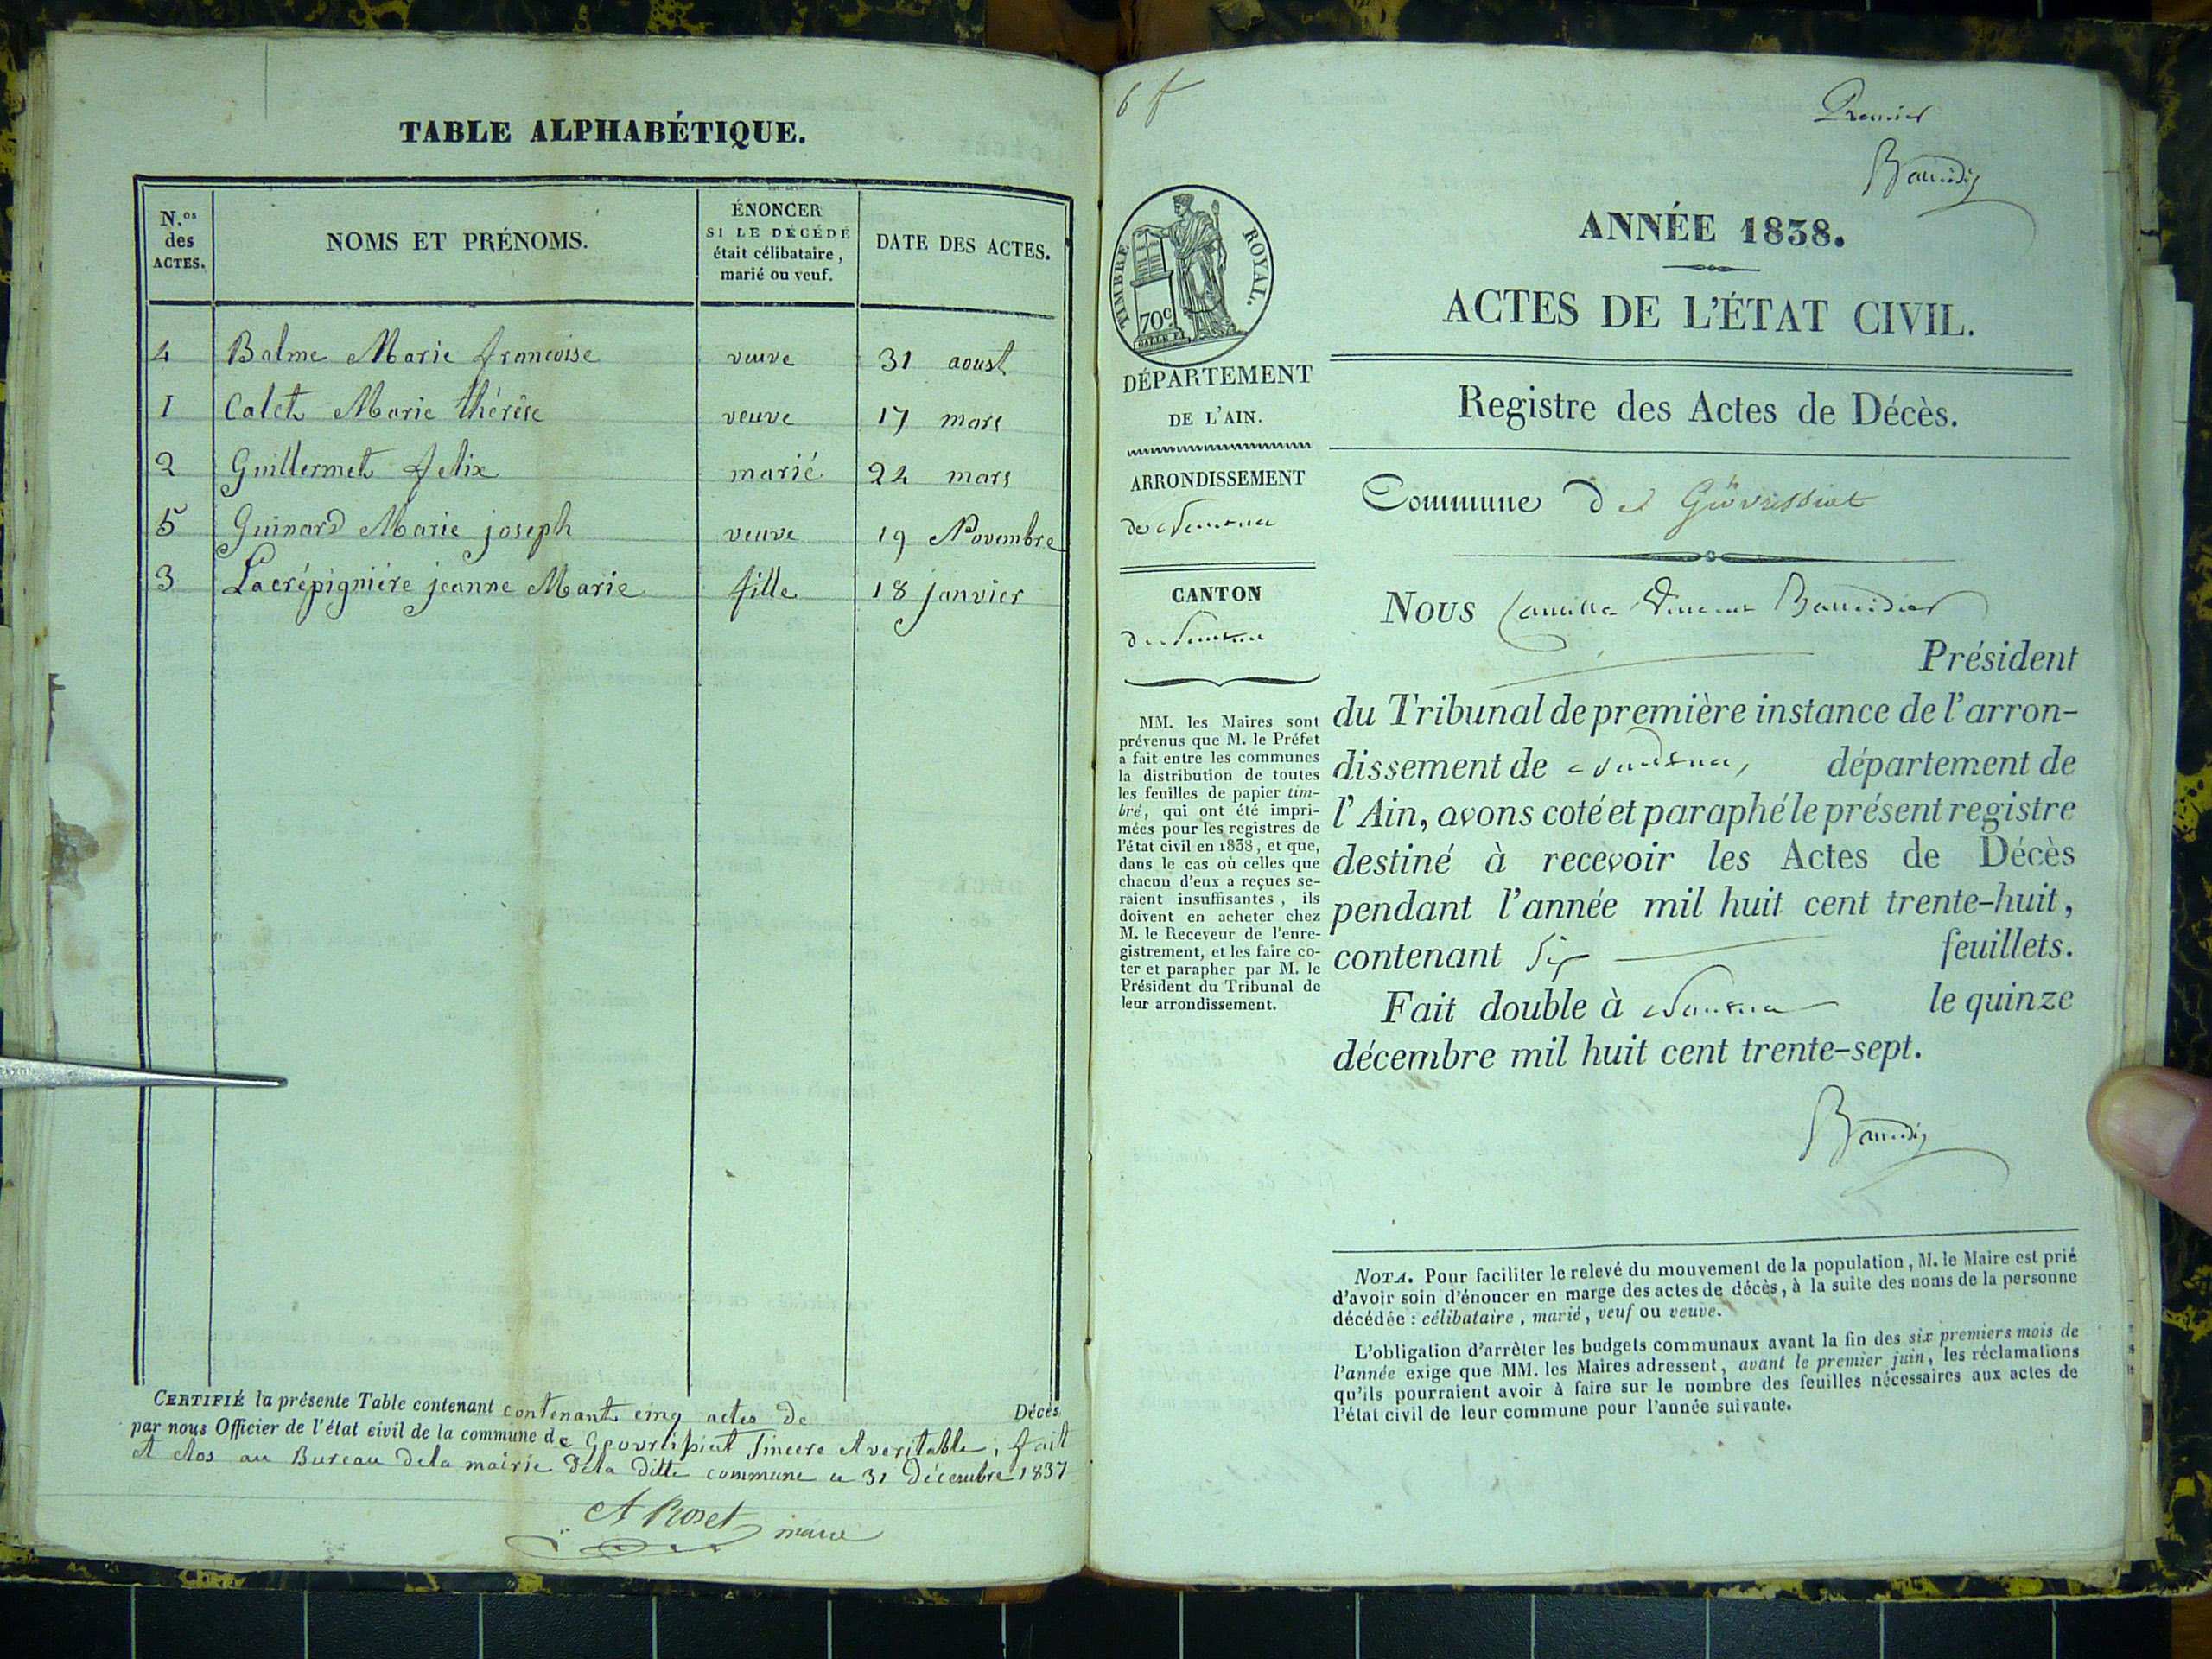 TABLE ALPHABÉTIQUE.
N.os des ACTES.
NOMS ET PRÉNOMS.
ÉNONCER
SI LE DÉCÉDÉ
était célibataire,
marié ou veuf.
DATE DES ACTES.
4 Balme Marie françoise veuve 31 aoust
1 Calet Marie thérèse veuve 17 mars
2 Guillermet felix marié 24 mars
5 Guinard Marie joseph veuve 19 Novembre
3 Lacrépignière jeanne Marie fille 18 janvier
CERTIFIÉ la présente Table contenant contenant cinq actes de Décès
par nous Officier de l'état civil de la commune de Geovreissiat sincere et veritable, fait
et clos au Bureau de la mairie de la ditte commune ce 31 décembre 1837
A Roset maire
6 f
Premier
TIMBRE ROYAL.
70c
DÉPARTEMENT
DE L'AIN.
ARRONDISSEMENT
de Nantua
CANTON
de Nantua
MM. les Maires sont
prévenus que M. le Préfet
a fait entre les communes
la distribution de toutes
les feuilles de papier tim-
bré, qui ont été impri-
mées pour les registres de
l'état civil en 1838, et que,
dans le cas où celles que
chacun d'eux a reçues se-
raient insuffisantes, ils
doivent en acheter chez
M. le Receveur de l'enre-
gistrement, et les faire co-
ter et parapher par M. le
Président du Tribunal de
leur arrondissement.
ANNÉE 1838.
ACTES DE L'ÉTAT CIVIL.
Registre des Actes de Décès.
Commune de Géovreissiat
Nous Camille Vincent Baudier
Président
du Tribunal de première instance de l'arron-
dissement de Nantua, département de
l'Ain, avons coté et paraphé le présent registre
destiné à recevoir les Actes de Décès
pendant l'année mil huit cent trente-huit,
contenant Six feuillets.
Fait double à Nantua le quinze
décembre mil huit cent trente-sept.
NOTA. Pour faciliter le relevé du mouvement de la population, M. le Maire est prié
d'avoir soin d'énoncer en marge des actes de décès, à la suite des noms de la personne
décédée : célibataire, marié, veuf ou veuve.
L'obligation d'arrêter les budgets communaux avant la fin des six premiers mois de
l'année exige que MM. les Maires adressent, avant le premier juin, les réclamations
qu'ils pourraient avoir à faire sur le nombre des feuilles nécessaires aux actes de
l'état civil de leur commune pour l'année suivante.